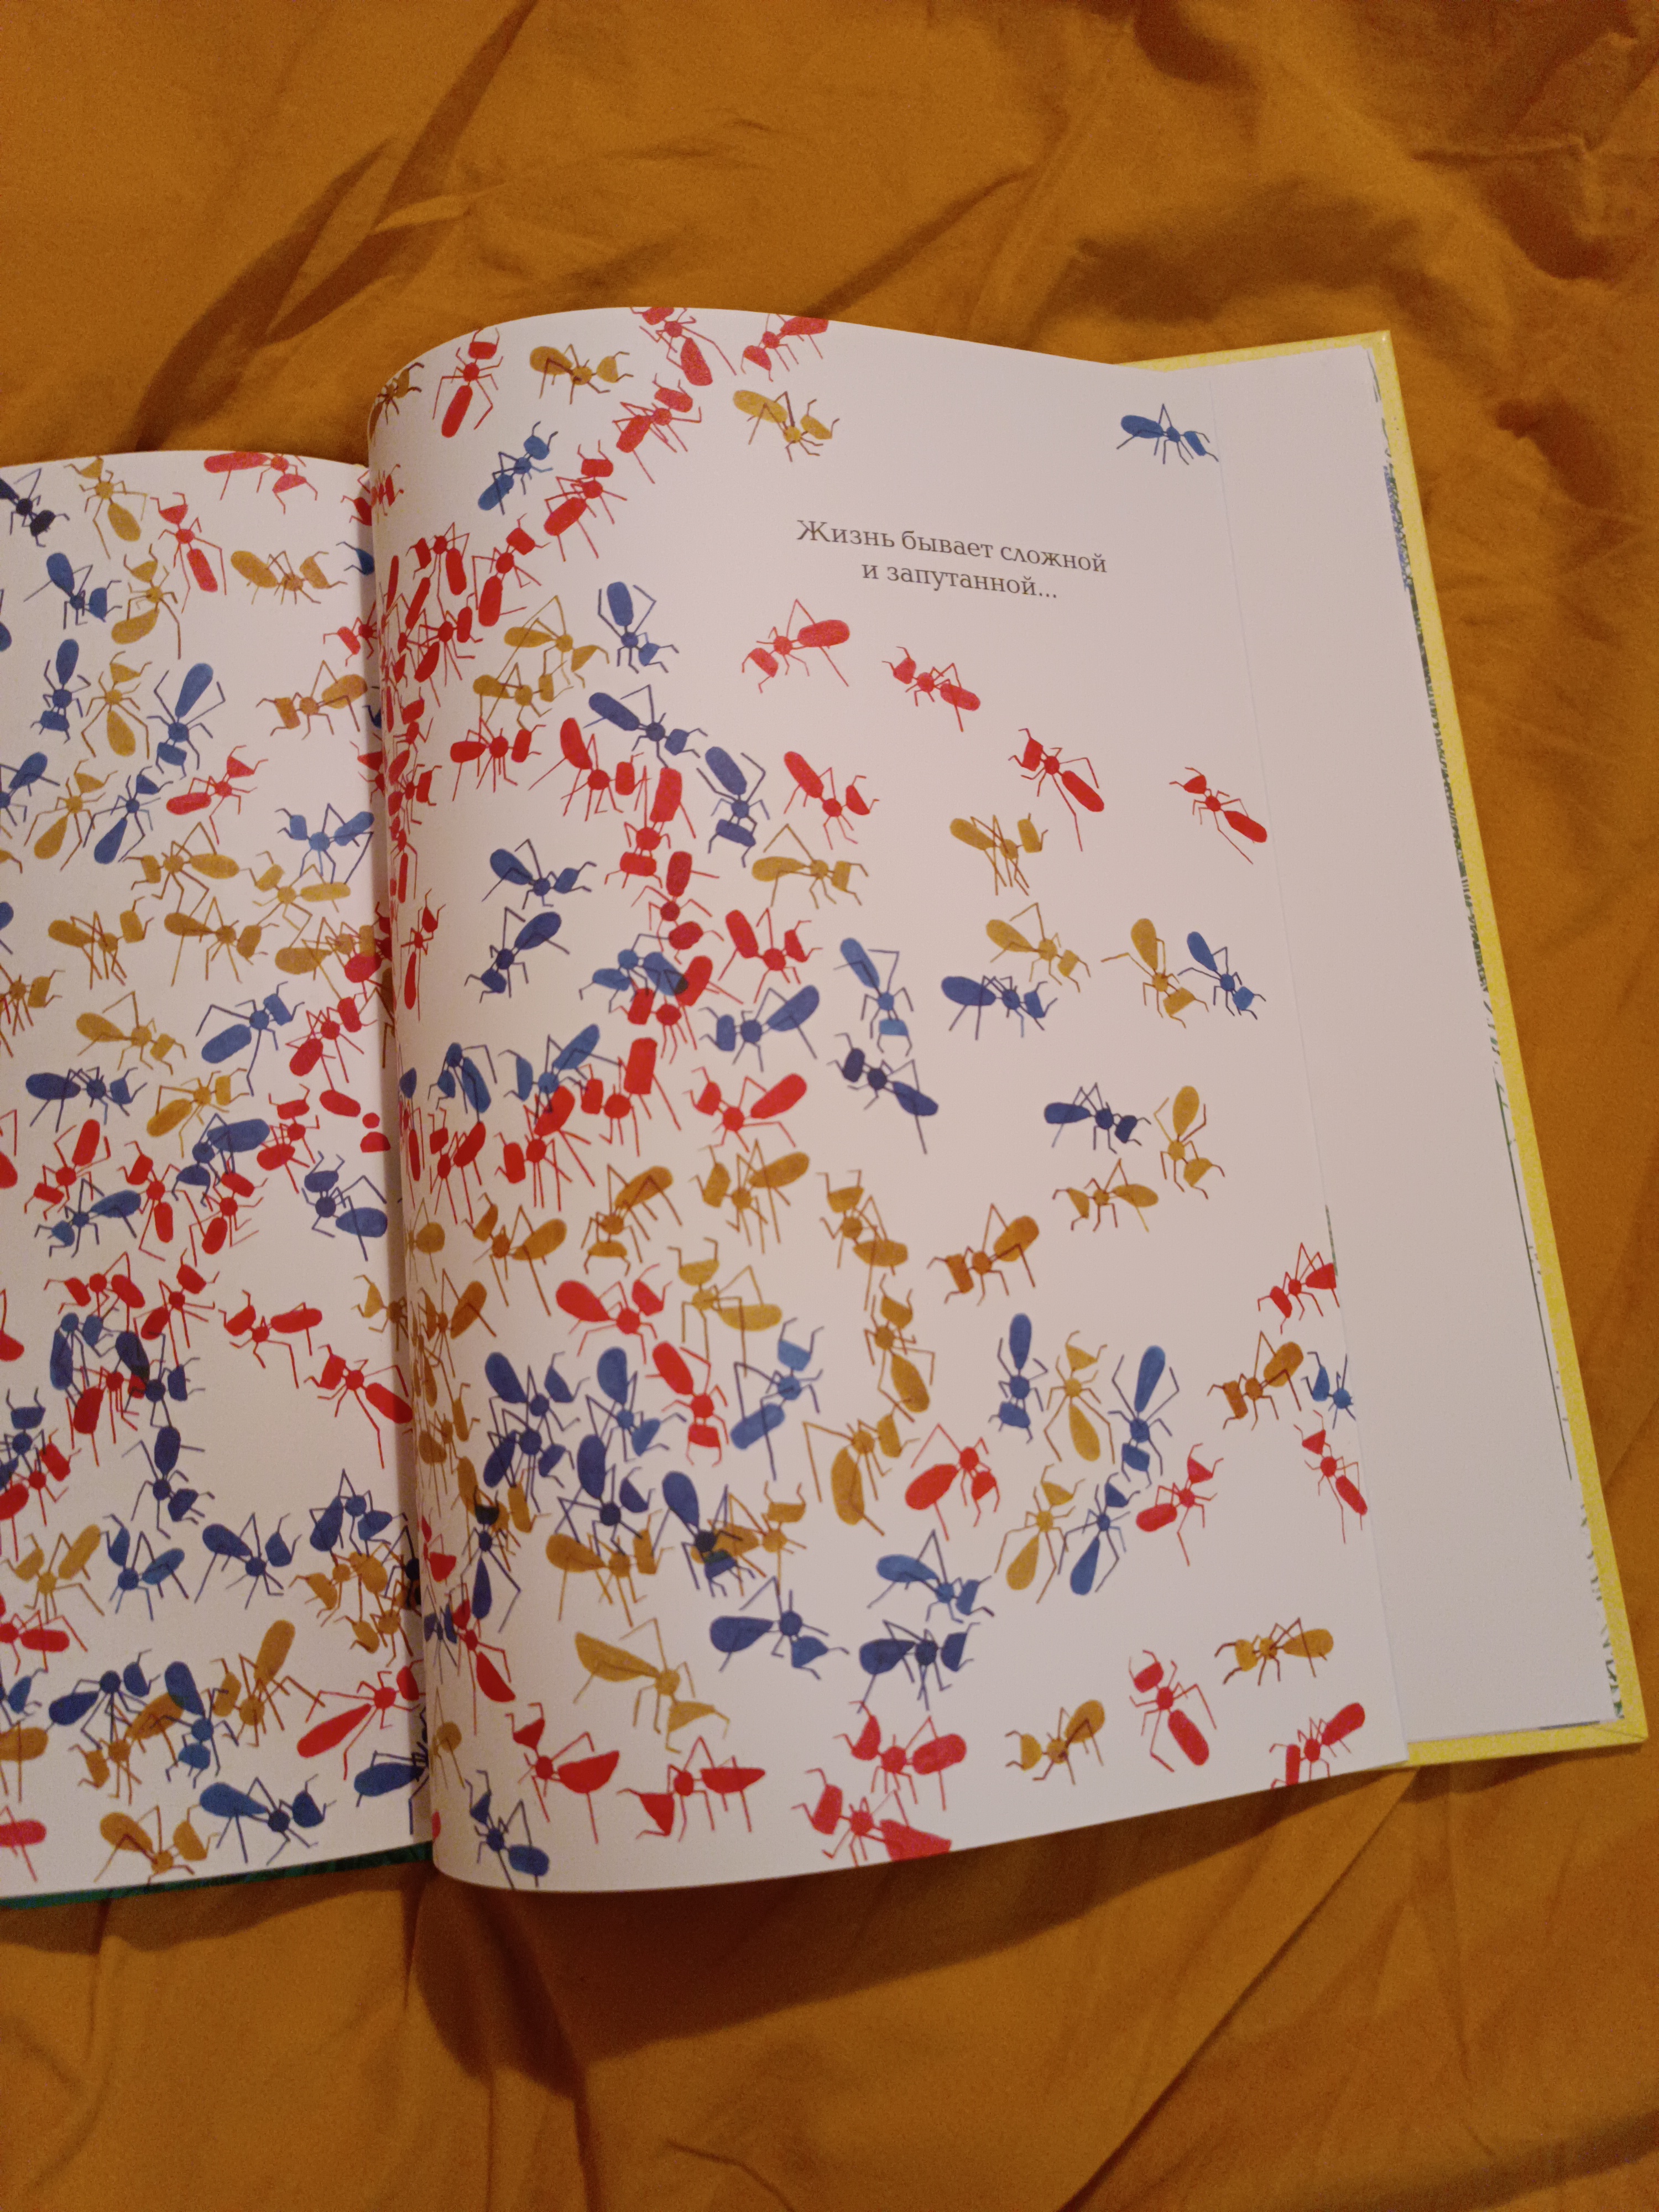 Жизнь бывает сложной
и запутанной...